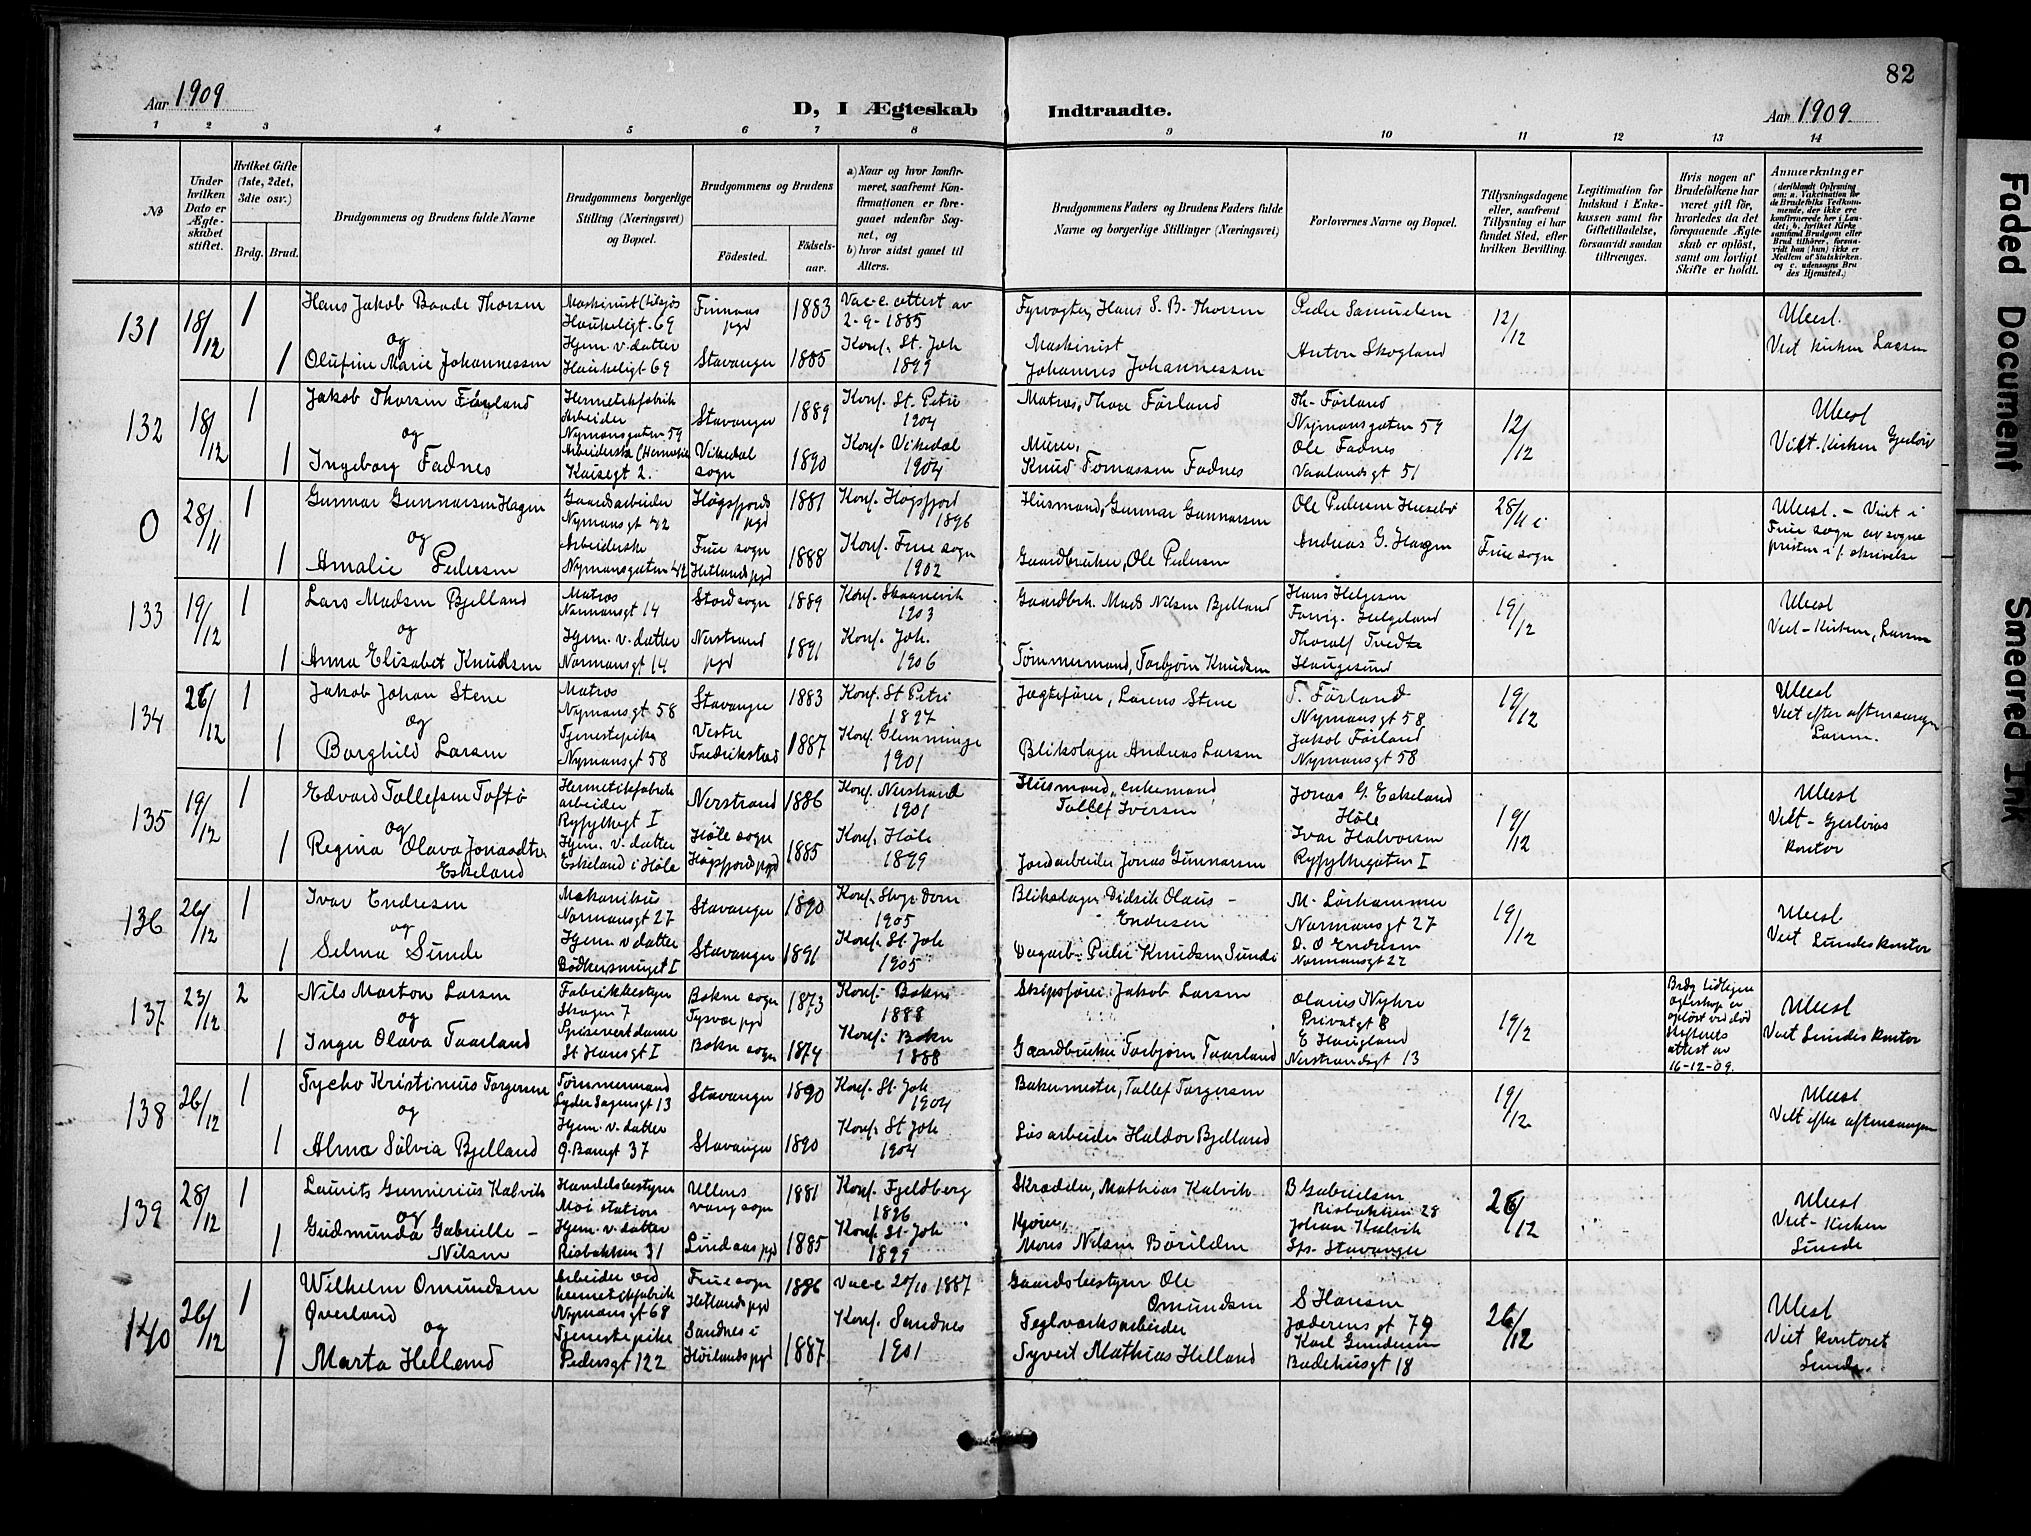 82
Aar 1909
D, I Ægteskab Indtraadte.
Aar 1909
1 2 3 4 5 6 7 8 9 10 11 12 13 14
№
Under hvilken Dato er Ægteskabet stiftet.
Hvilket Gifte (1ste, 2det, 3die osv.)
Brdg. Brud.
Brudgommens og Brudens fulde Navne
Brudgommens borgerlige Stilling (Næringsvei) og Bopæl.
Brudgommens og Brudens
Fødested.
Fødselsaar.
a) Naar og hvor konfirmeret, saafremt Konfirmationen er foregaaet udenfor Sognet, og
b) hvor sidst gaaet til Alters.
Brudgommens Faders og Brudens Faders fulde Navne og borgerlige Stillinger (Næringsvei)
Forlovernes Navne og Bopæl.
Tillysningsdagene eller, saafremt Tillysning ei har fundet Sted, efter hvilken Bevilling.
Legitimation for Indskud i Enkekassen samt for Giftetilladelse, forsaavidt saadan tiltrænges.
Hvis nogen af Brudefolkene har været gift før, hvorledes da det foregaaende Ægteskab er opløst, samt om lovligt Skifte er holdt.
Anmærkninger
131 18/12 1
Hans Jakob Baade Thorsen
og
1 Olufine Marie Johannessen
Haukeligt 69
Hjem. v. datter
Haukeligt 69
Finnaas pgd 1883
Stavanger 1885
Vac. attest av
2-9-1885
Konf. St. Joh
1899
Fyrvogter, Hans S. B. Thorsen
Maskinist
Johannes Johannessen
Peder Samuelsen
Anton Skogland
12/12
Ubesl.
Viet Kirken Larsen
132 18/12 1
Jakob Thorsen Førland
og
1 Ingeborg Fadnes
Hermetikfabrik
Arbeider
Nymansgaten 59
Stavanger 1889
Vikedal sogn 1890
Konf. St. Petri
1904
Konf. Vikedal
1904
Matros, Thore Førland
Murer,
Knud Tomassen Fadnes
Th. Førland
Nymansgaten 59
Ole Fadnes
Vaalandsgt 51
12/12
Ubesl
Viet. Kirken
0 28/11 1
Gunnar Gunnarsen Hagen
og
1 Amalie Pedersen
Gaardsarbeider
Nymansgt 42
Arbeiderske
Nymansgaten 42
Høgsfjords pgd 1881
Frue sogn
Hetlands pgd 1888
Konf. Høgsfjord
1896
Konf. Frue sogn
1902
Husmand, Gunnar Gunnarsen
Gaardbruker, Ole Pedersen
Ole Pedersen Husebø
Andreas G. Hagen
28/11 i
Frue sogn
Ubesl. - Viet i
Frue sogn av sogne
presten i f. skrivelse
133 19/12 1
Lars Madsen Bjelland
og
1 Anna Elisabet Knudsen
Matros
Normansgt 14
Hjem. v. datter
Normansgt 14
Stord sogn 1889
Nerstrand pgd 1891
Konf. Skaanevik
1903
Konf. Joh.
1906
Gaardbrk. Mads Nilsen Bjelland
Tømmermand, Torbjørn Knudsen
Hans Helgesen
Haugesund
19/12
Ubesl
Viet - Kirken, Larsen
134 26/12 1
Jakob Johan Stene
og
1 Borghild Larsen
Matros
Nymansgt 58
Tjenestepike
Nymansgt 58
Stavanger 1883
Vestre
Fredrikstad 1887
Konf. St Petri
1897
Konf. Glemminge
1901
Jagtefører, Larens Stene
Blikslager Andreas Larsen
T. Førland
Nymansgt 58
Jakob Førland
Nymansgt 58
19/12
Ubesl
Viet efter aftensangen
Larsen.
135 19/12 1
Edvard Tollefsen Toftø
og
1 Regina Olava Jonasdtr
Eskeland
Hermetikfabrik
arbeider
Ryfylkegt I
Hjem. v. datter
Eskeland i Høle
Nerstrand 1886
Høle sogn
Høgsfjord pgd 1885
Konf. Nerstrand
1901
Konf. Høle
1899
Husmand, enkemand,
Tollef Iversen
Jordarbeider Jonas Gunnarsen
Jonas G. Eskeland
Høle
Ivar Halvorsen
Ryfylkegaten I
19/12
Ubesl
Viet - Gjerløws
kontor
136 26/12 1
Ivar Endresen
og
1 Selma Sunde
Mekanikus
Normansgt 27
Hjem. v datter
Bødkersmuget I
Stavanger 1890
Stavanger 1891
Konf. Stvgr Dom
1905
Konf. St. Joh
1905
Blikslager Didrik Olaus -
Endresen
Dagarb. Peder Knudsen Sunde
Normansgt 27
D. O Endresen
Normansgt 27
19/12
Ubesl
Viet Sundes kontor
137 23/12 2
Nils Morton Larsen
og
1 Inger Olava Taarland
Fabrikbestyrer
Skagen 7
St Hansgt I
Bokn sogn
Tysvær pgd 1873
Bokn sogn 1874
Konf. Bokn
1888
Konf: Bokn
1888
Skipsfører: Jakob Larsen
Gaardbruker Torbjørn Taarland
Privatgt 8
E Haugland
Nerstrandsgt 13
19/12
Brdg tidligere
egteskap er
opløst ved død
skifterets
attest av
16-12-09.
Ubesl
Viet Sundes kontor
138 26/12 1
Tycho Kristinus Torgersen
og
1 Alma Solvia Bjelland
Tømmermand
Lyder Sagensgt 13
Hjem. v. datter
Stavanger 1890
Stavanger 1890
Konf. St. Joh
1904
Konf. St Joh
1904
Bakermester, Tollef Torgersen
Løsarbeider Haldor Bjelland
19/12
Ubesl
Viet efter aftensangen
139 28/12 1
Laurits Gunnerius Kalvik
og
1 Gudmunda Gabrielle -
Nilsen
Handelsbestyrer
Moi station
Hjem. v. datter
Risbakken 31
Ullensvang sogn 1881
Lindaas pgd 1885
Konf. Fjeldberg
1896
Konf. St. Joh
1899
Skrædder, Mathias Kalvik
Kjører,
Mons Nilsen Børilden
B Gabrielsen
Risbakken 28
Johan Kalvik
Stavanger
26/12
Ubesl
Viet - Kirken
Sunde
140 26/12 1
Wilhelm Omundsen
Øverland
og
1 Marta Helland
Arbeider ved
hermetikfabrik
Nymansgt 68
Tjenestepike
Pedersgt 122
Frue sogn
Hetlands pgd 1886
Sandnes i
Høilands pgd 1887
Vacc 20/10 1887
Konf. Sandnes
1901
Gaardsbestyrer Ole
Omundsen
Teglverksarbeider
Syvert Mathias Helland
S Hansen
Jæderensgt 79
Karl Gundersen
Badehusgt 18
26/12
Ubesl
Viet kontoret
Sunde.
Faded Document
Smeared Ink